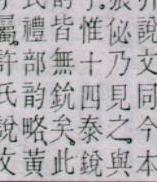 說文同今本
佖乃見之與
惟十四泰銳
皆無鈗矣此
禮部韵略黄
屬許氏說文